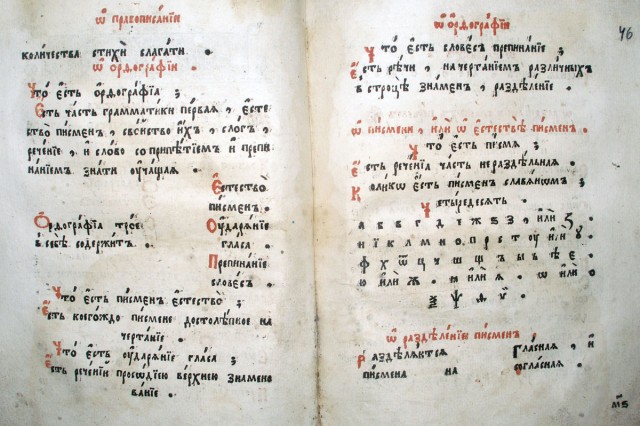 Ѡ правописа́нїи
коли́чества стихѝ слага́ти .
Ѡ ѻ҆рѳогра́фїи
Что̀ є҆́сть ѻ҆рѳогра́фїа ;
Є҆́сть ча́сть грамма́тики пе́рваѧ , є҆сте
ство̀ пи́сменъ , сво́йство и҆́хъ , сло́гъ ,
рече́нїе , и҆ сло́во со припѣ́тїемъ и҆ препи
на́нїемъ зна́ти ᲂу҆ча́щаѧ .
Є҆стество̀
пи́сменъ .
Ѻ҆рѳогра́фїа трѡ́е
в себѣ̀ содержи́тъ .
Оу҆даре́нїе
гла́са .
Препина́нїе
слове́съ .
Что̀ є҆́сть пи́сменъ є҆стество̀ ;
Є҆́сть коегѡ́ждо пи́смене достолѣ́пное на
черта́нїе .
Что̀ є҆́сть ᲂу҆даре́нїе гла́са ;
Є҆́сть рече́нїй просѡді́ею ве́рхнею зна́мено
ва́нїе .
Ѡ ѻ҆рѳогра́фїи
46
Что̀ є҆́сть слове́съ препина́нїе ;
Є҆́сть рѣ́чи , начерта́нїемъ разли́чныхъ
в строцѣ̀ зна́менъ , раздѣле́нїе .
Ѡ пи́смени , и҆лѝ ѡ҆ є҆стествѣ̀ пи́сменъ .
Что̀ є҆́сть пи́смѧ ;
Є҆́сть рече́нїѧ ча́сть нераздѣ́льнаѧ .
Коли́кѡ є҆́сть пи́сменъ славѧ́нѡмъ ;
Четы́редесѧть .
а в в г д є ж ѕ з , и҆лѝ ꙁ .
и і к л м н о п р с т ᲂу и҆лѝ ꙋ .
ф х ѿ ц ч ш щ ъ ы ь ѣ є .
ю и҆лѝ ѫ . ѧ и҆лѝ ꙗ . ѡ и҆лѝ ѻ .
ѯ ѱ ѳ ѵ .
Ѡ раздѣле́нїи пи́сменъ
Раздѣлѧ́ютсѧ
пи́смена на
гла́снаѧ , и҆
согла́снаѧ .
м҃ѕ